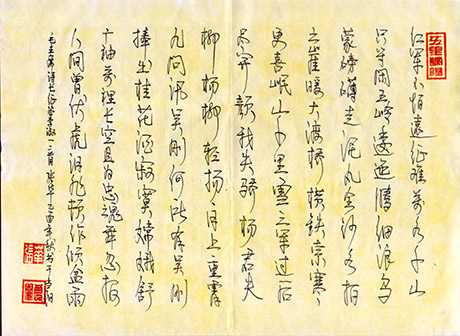 红军不怕远征难万水千山
只等闲五岭逶迤腾细浪乌
蒙磅礴走泥丸金沙水拍
云崖暖大渡桥横铁索寒
更喜岷山千里雪三军过后
尽开颜我失骄杨君失
柳杨柳轻扬直上重霄
九问讯吴刚何所有吴刚
捧出桂花酒寂寞嫦娥舒
广袖万里长空且为忠魂舞忽报
人间曾伏虎泪飞顿作倾盆雨
毛主席诗长征答李淑一二首 乙酉年秋书于